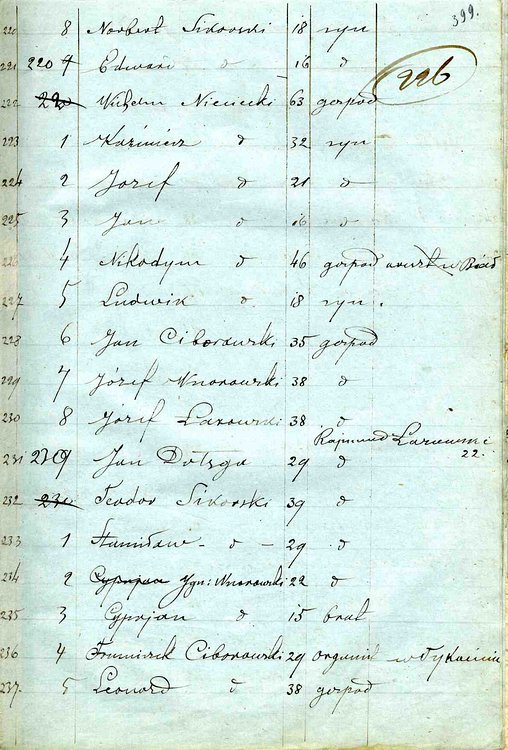 399.
220 8 Norbert Sikorski 18 syn
221 220 9 Edward d 16 d
226
222 22 Wilhelm Nienecki 63 gospod
223 1 Kazimierz d 32 syn
224 2 Józef d 21 d
225 3 Jan d 16 d
226 4 Nikodym d 46 gospod
227 5 Ludwik d. 18 syn.
228 6 Jan Ciborowski 35 gospod
229 7 Józef Wnorowski 38 d
230 8 Józef Łazowski 38 d
Rajmund Łazowski
22.
231 230 9 Jan Dołęga 29 d
232 23 Teodor Sikorski 39 d
233 1 Stanisław - d - 29 d
234 2 Cyprjan Ign: Wnorowski 22 d
235 3 Cyprjan d 15 brat
236 4 Franciszek Ciborowski 29 organis w Tykocinie
237. 5 Leonard d 38 gospod